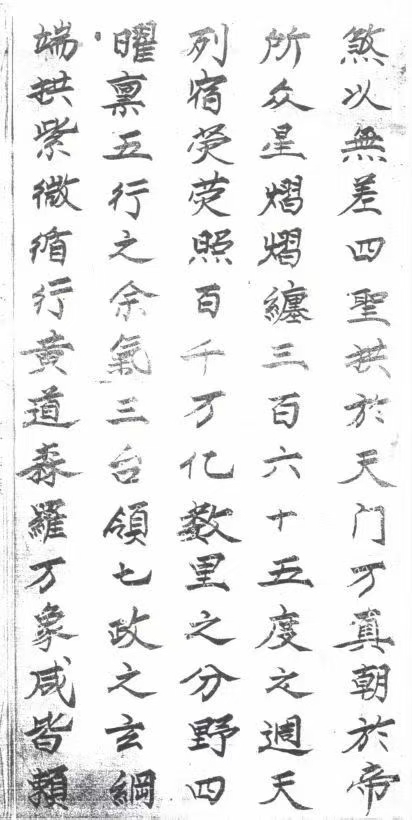 煞以無差四聖拱於天门万真朝於帝
所众星熠熠纏三百六十五度之週天
列宿荧荧照百千万亿数里之分野四
曜禀五行之余氣三台領七政之玄綱
端拱紫微循行黄道森羅万象咸皆頼